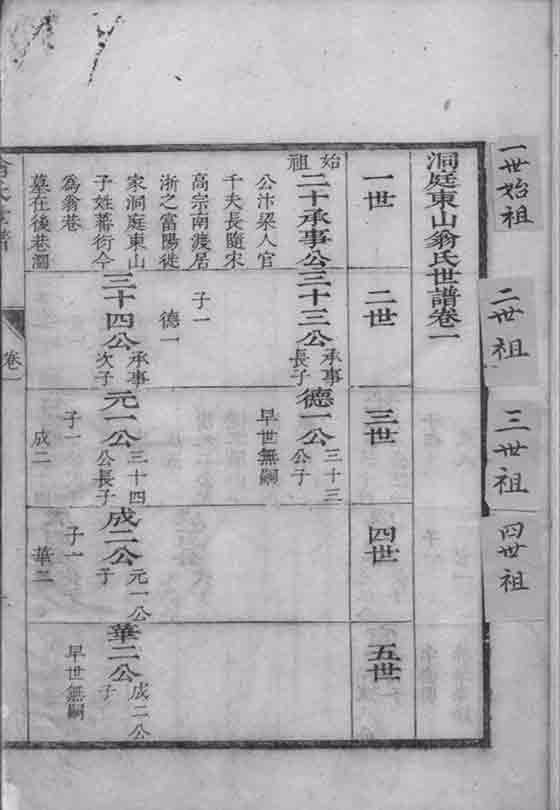 一世始祖
二世祖
三世祖
四世祖
洞庭東山翁氏世譜卷一
一世
二世
三世
四世
五世
始祖
二十承事公
公汴梁人官
千夫長隨宋
高宗南渡居
浙之富陽徙
家洞庭東山
子姓蕃衍今
為翁巷
墓在後巷澗
三十三公
承事
長子
子一
德一
德一公
三十三
公子
早世無嗣
三十四公
承事
次子
元一公
三十四
公長子
子一
成二
成二公
元一公
子
子一
華二
華二公
成二公
子
早世無嗣
卷一